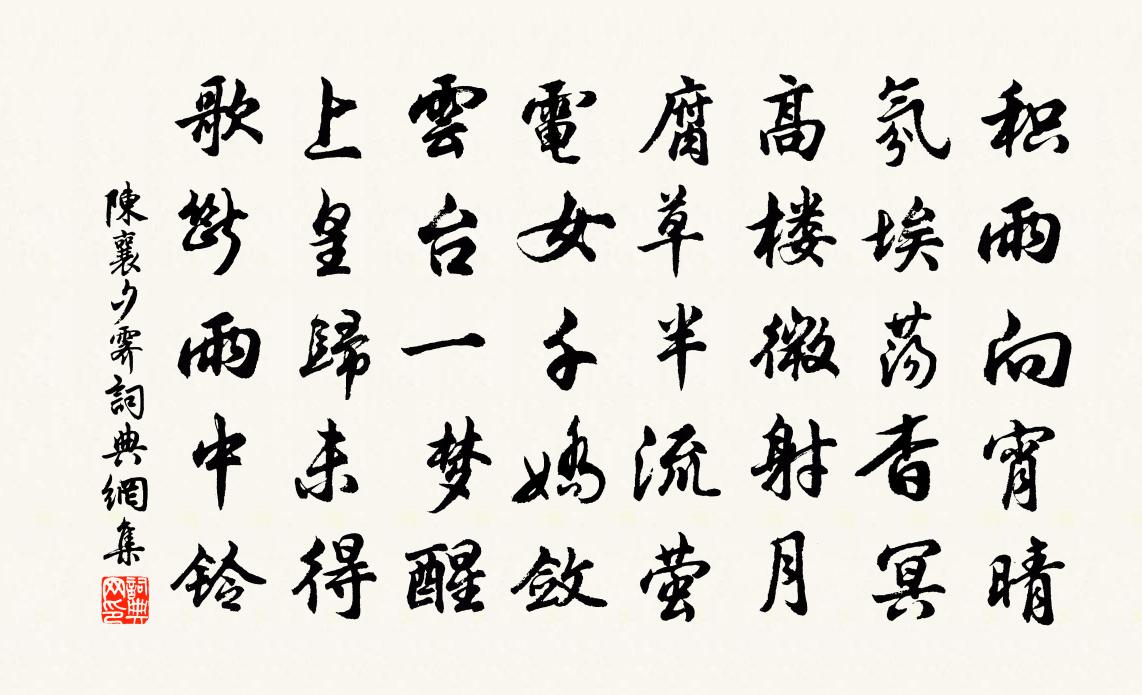 积雨向宵晴
氛埃荡杳冥
高楼微射月
腐草半流萤
電女千嬌敛
雲台一梦醒
上皇歸未得
歌斷雨中鈴
陳襄夕霽詞典網集
詞典網印